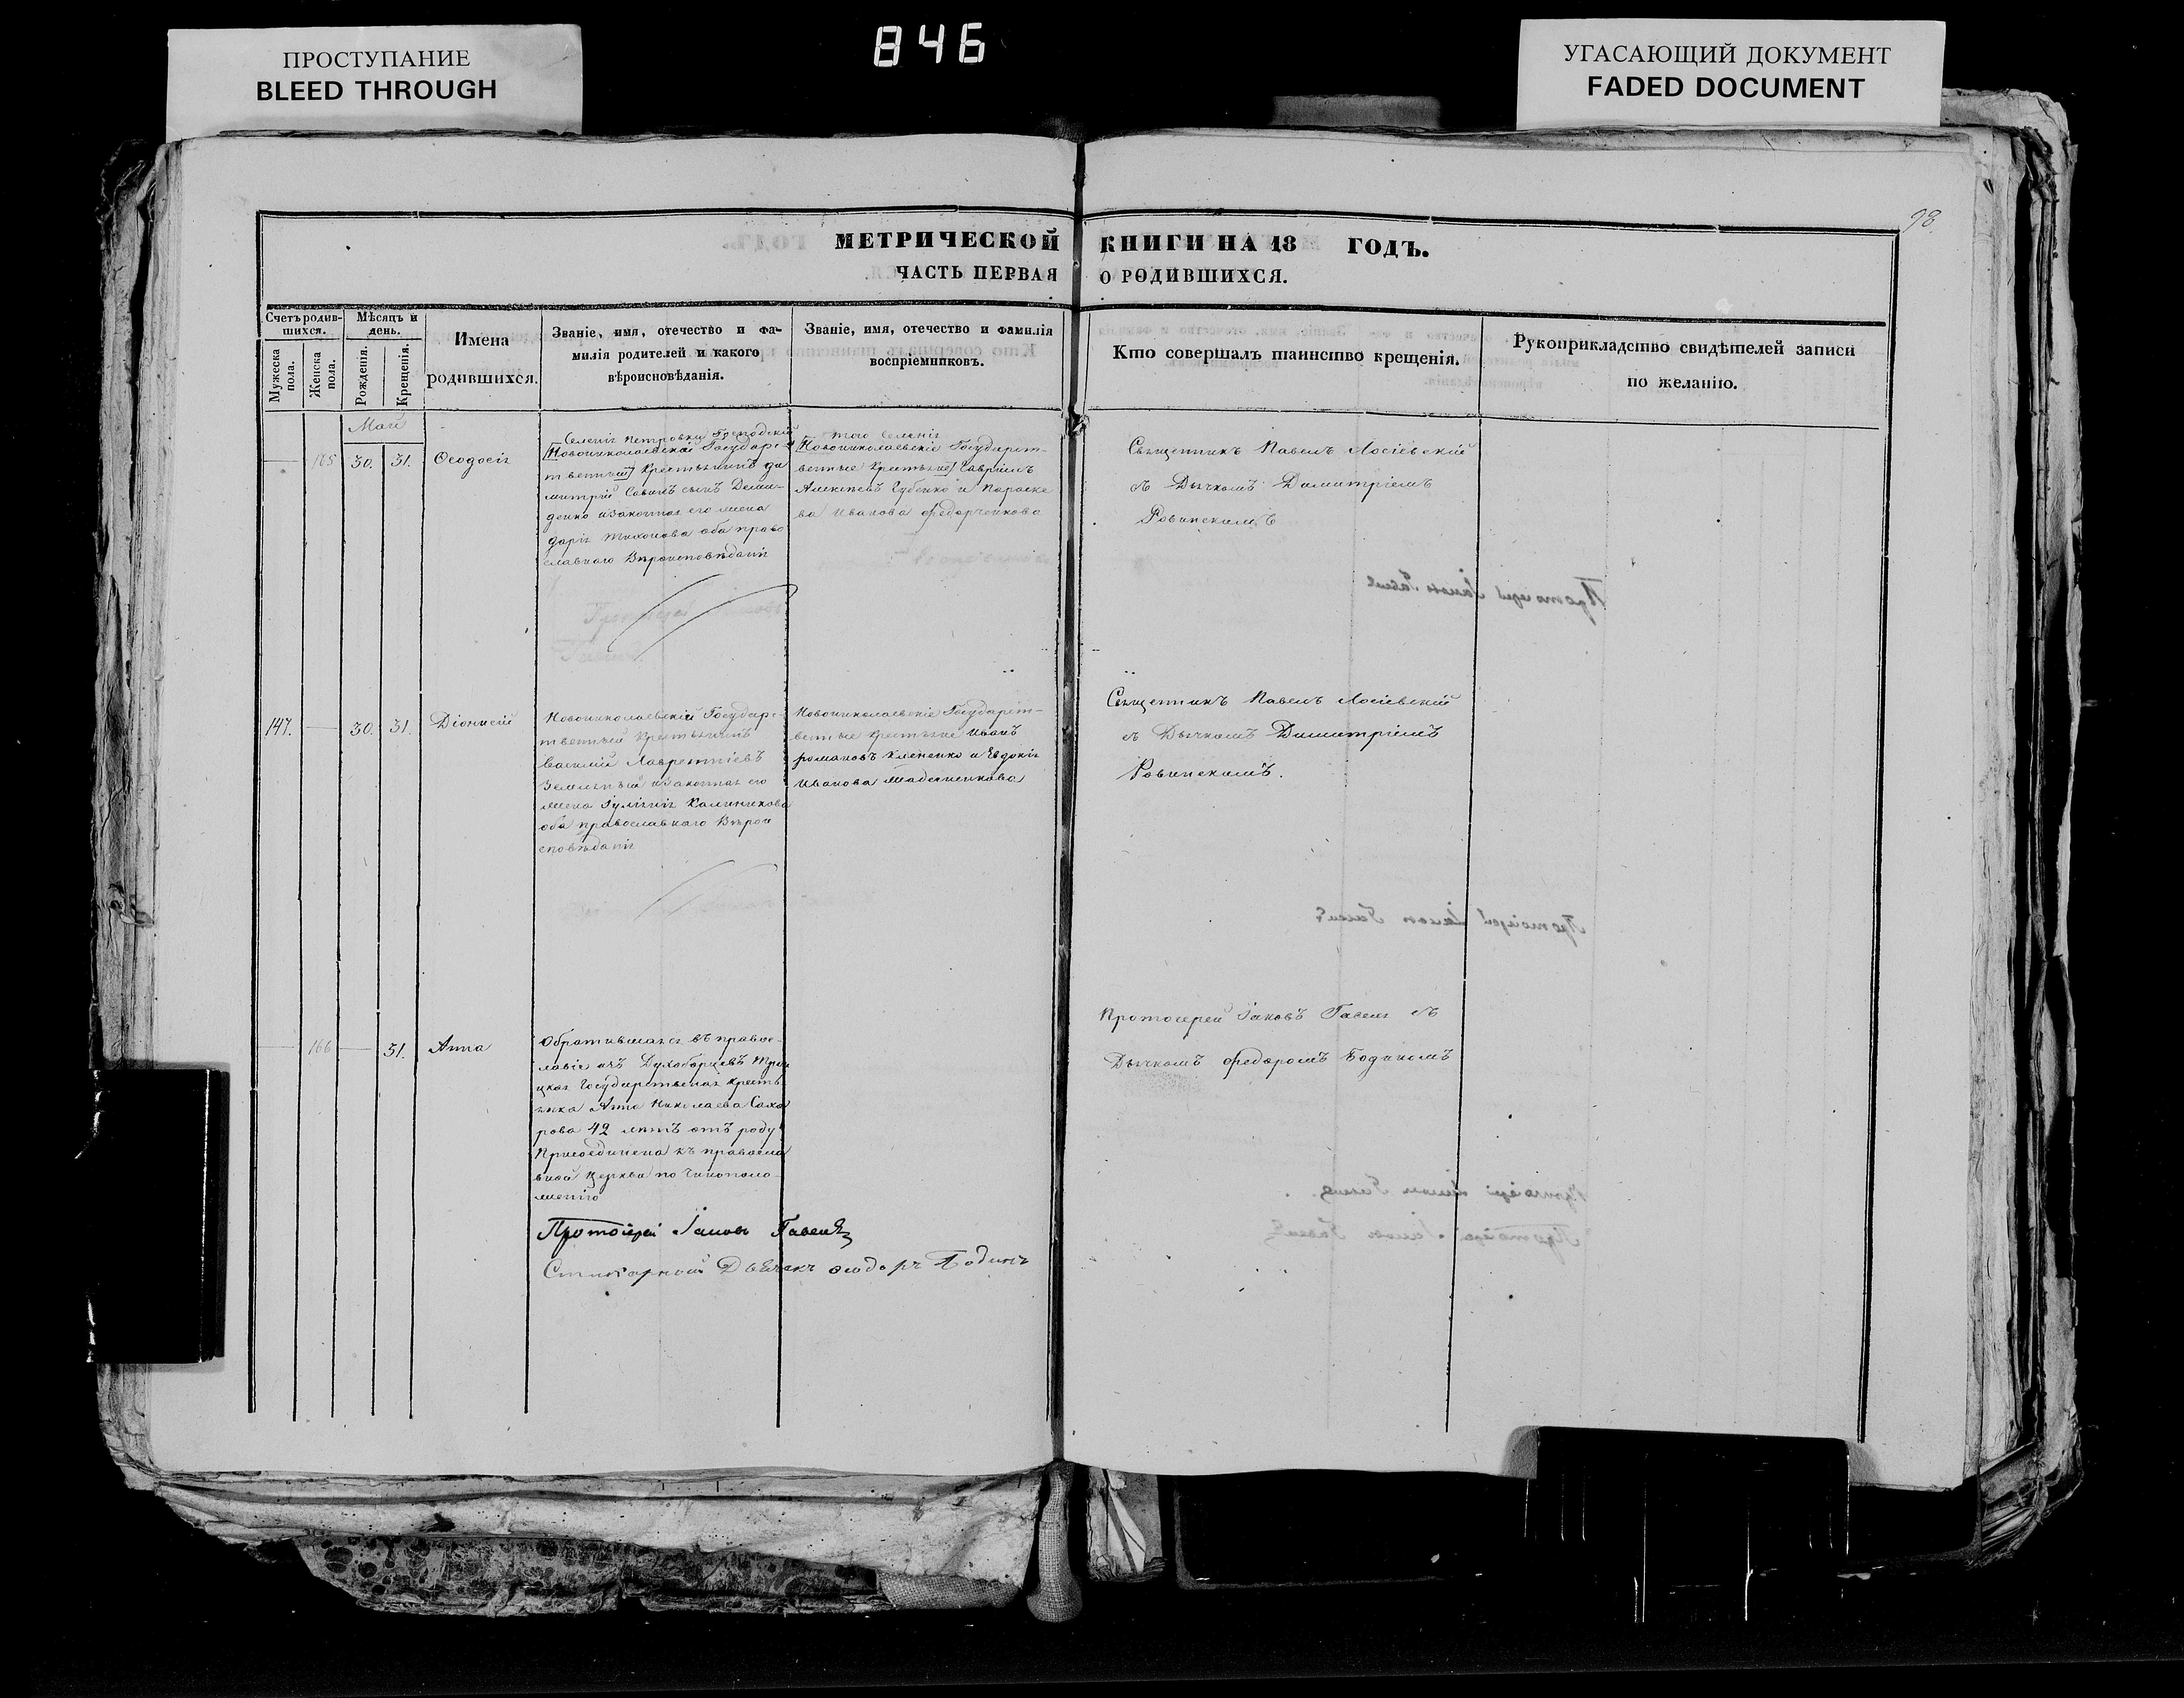 ПРОСТУПАНИЕ
BLEED THROUGH
846
УГАСАЮЩИЙ ДОКУМЕНТ
FADED DOCUMENT
98.
МЕТРИЧЕСКОЙ КНИГИ НА 18 ГОДЪ.
ЧАСТЬ ПЕРВАЯ О РОДИВШИХСЯ.
Счетъ родив-
шихся.
Мужеска
пола.
Женска
пола.
Мѣсяцъ и
день.
Рожденія.
Крещенія.
Имена
родившихся.
Званіе, имя, отечество и фа-
милія родителей и какого
вѣроисповѣданія.
Званіе, имя, отечество и фамилія
воспріемниковъ.
Кто совершалъ таинство крещенія.
Рукоприкладство свидѣтелей записи
по желанію.
Май
165 30. 31. Ѳеодосія
Селенія Петровки
Новониколаевской Государс-
твенный Крестьянинъ ди
митрій Савинъ сынъ Деми-
денко изаконная его жена
дарія Тихонова оба право
славнаго Вѣроисповѣданія
того Селенія
Новониколаевскіе Государст-
венные Крестьяне Гавріилъ
Алексѣевъ Губенко и Параске
ва Иванова Федорченкова
Священникъ Павелъ Лосіевскій
съ Дьячкомъ Димитріемъ
Ровинскимъ
147. 30. 31. Діонисій
Новониколаевскій Государс-
твенный Крестьянинъ
Василій Лаврентіевъ
изаконная его
жена Іуліанія Калиникова
оба православнаго Вѣрои
сповѣданія
Новониколаевскіе Государст-
венные Крестьяне Иванъ
романовъ Клененко и Евдокія
Иванова
Священникъ Павелъ Лосіевскій
съ Дьячкомъ Димитріемъ
Ровинскимъ.
166 31. Анна
Обратившаяся въ правос-
лавіе изъ Духоборцевъ Трои
цкая Государственая крестья
янка Анна Николаева Саха
рова 42 лѣтъ отъ роду
Присоединена къ правосла
вной Церкви по Чинополо
женію
Протоіерей Іаковъ Гавель съ
Дьячкомъ Федоромъ Бодиномъ
Протоіерей Іаковъ Гавель
Стихарный Дьячекъ Ѳеодоръ Бодинъ